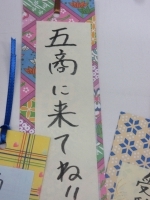 五商に来てね!!